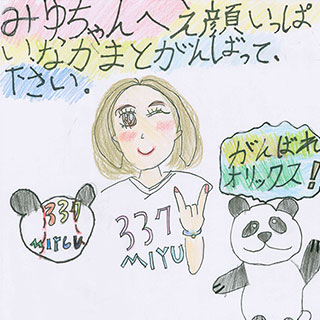 みゆちゃんへえ顔いっぱ
いなかまとがんばって、
下さい。
がんばれ
オリックス!
337
MIYU
337
MIYU